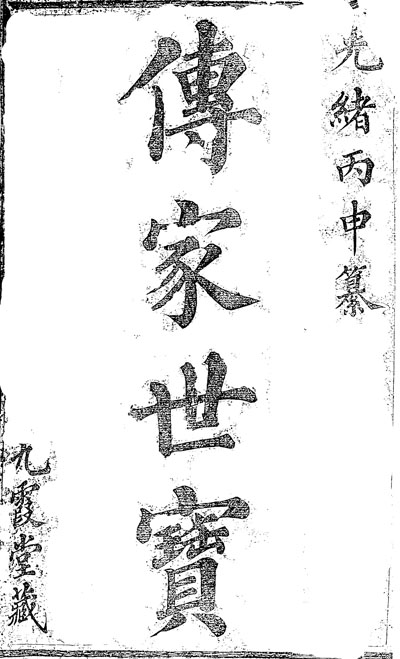 光緒丙申纂
傳家世寶
九霞堂藏